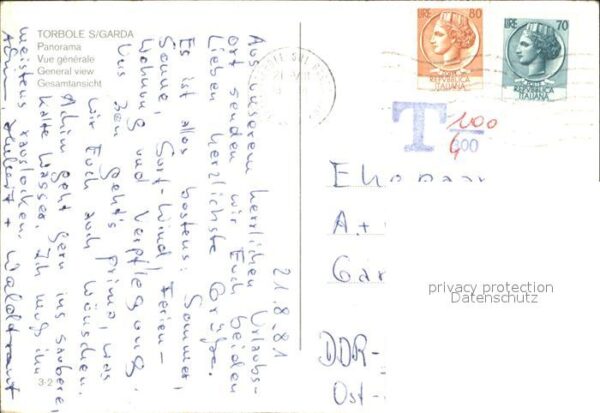 TORBOLE S/GARDA
Panorama
Vue générale
General view
Gesamtansicht
LIRE 80
REPVBBLICA
ITALIANA
LIRE 70
REPVBBLICA
ITALIANA
T 100
300
4
21.8.81
Aus unserem herrlichen Urlaubs-
ort senden wir Euch beiden
Lieben herzlichste Grüße.
Es ist alles bestens: Sommer,
Sonne, Surf-Wind, Ferien-
Wohnung und Verpflegung.
Uns 3en geht's prima, was
wir Euch auch wünschen.
Achim geht gern ins saubere,
kalte Wasser. Ich muß ihn
meistens rauslocken.
Achim, + Waldtraut
Ehepaar
A.+
Gär
DDR-
Ost-
3-2
privacy protection
Datenschutz